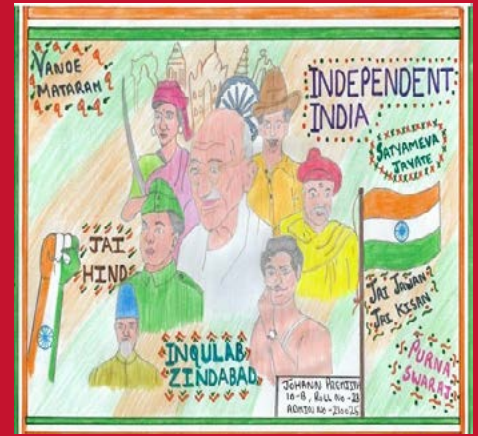 VANDE
MATARAM
INDEPENDENT
INDIA
SATYAMEVA
JAYATE
JAI
HIND
JAI JAWAN
JAI KISAN
INQULAB
ZINDABAD
PURNA
SWARAJ
JOHANN
10-B, ROLL NO-23